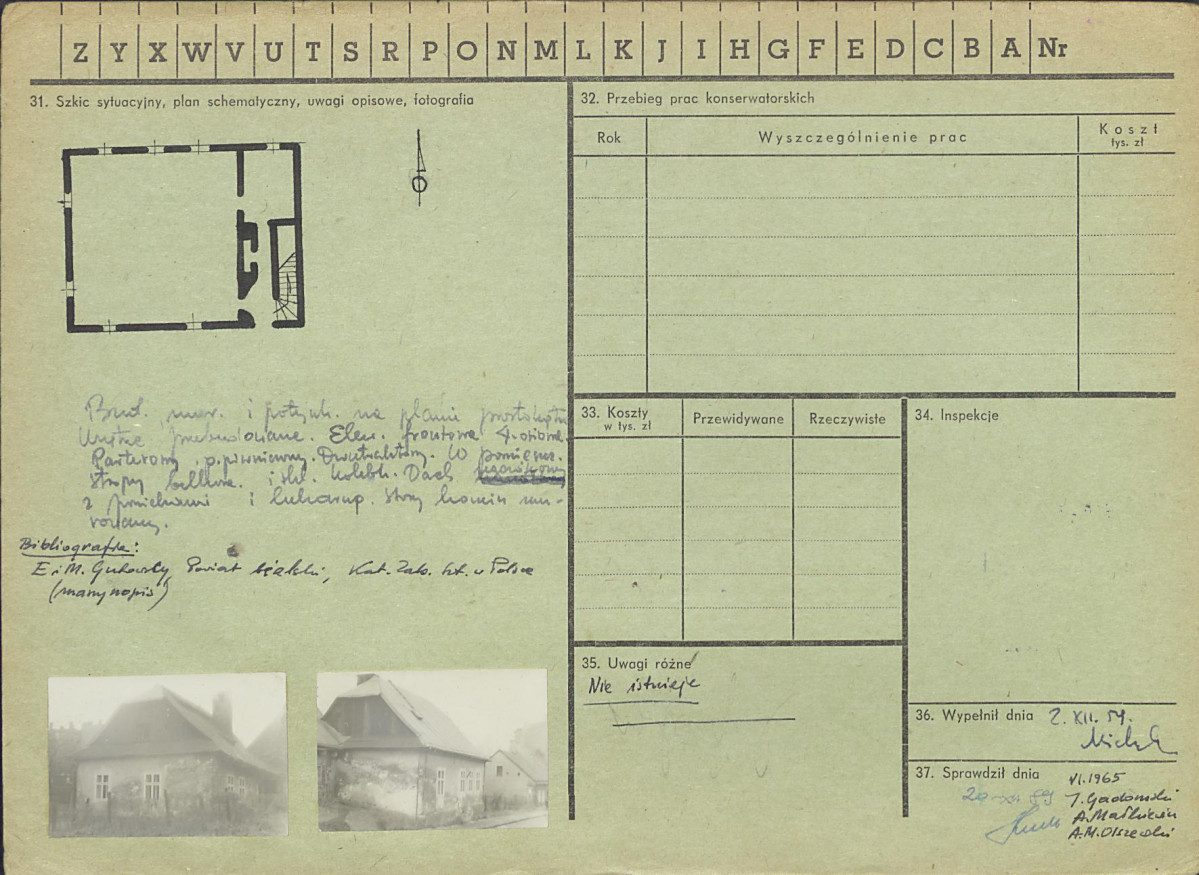 Z Y X W V U T S R P O N M L K J I H G F E D C B A Nr
31. Szkic sytuacyjny, plan schematyczny, uwagi opisowe, fotografia
Bud. mur. i potynk. na planie prostokąta
Wnętrze przebudowane. Elew. frontowa 4-osiowa.
Parterowy, p. piwniczony. Dwutraktowy. W pomieszcz.
stropy belkow. i skl. kolebk. Dach
z i lukarną. Stary komin mu-
rowany.
Bibliografia:
E i M. Gutowscy Powiat bialski, Kat. Zab. Szt. w Polsce
(manynopis)
32. Przebieg prac konserwatorskich
Rok Wyszczególnienie prac Koszt
tys. zł
33. Koszty
w tys. zł
Przewidywane Rzeczywiste
34. Inspekcje
35. Uwagi różne
Nie istnieje
36. Wypełnił dnia 2. XII. 59.
37. Sprawdził dnia VI.1965
J. Gadomski
A. Małkiewicz
A.M. Olszewski